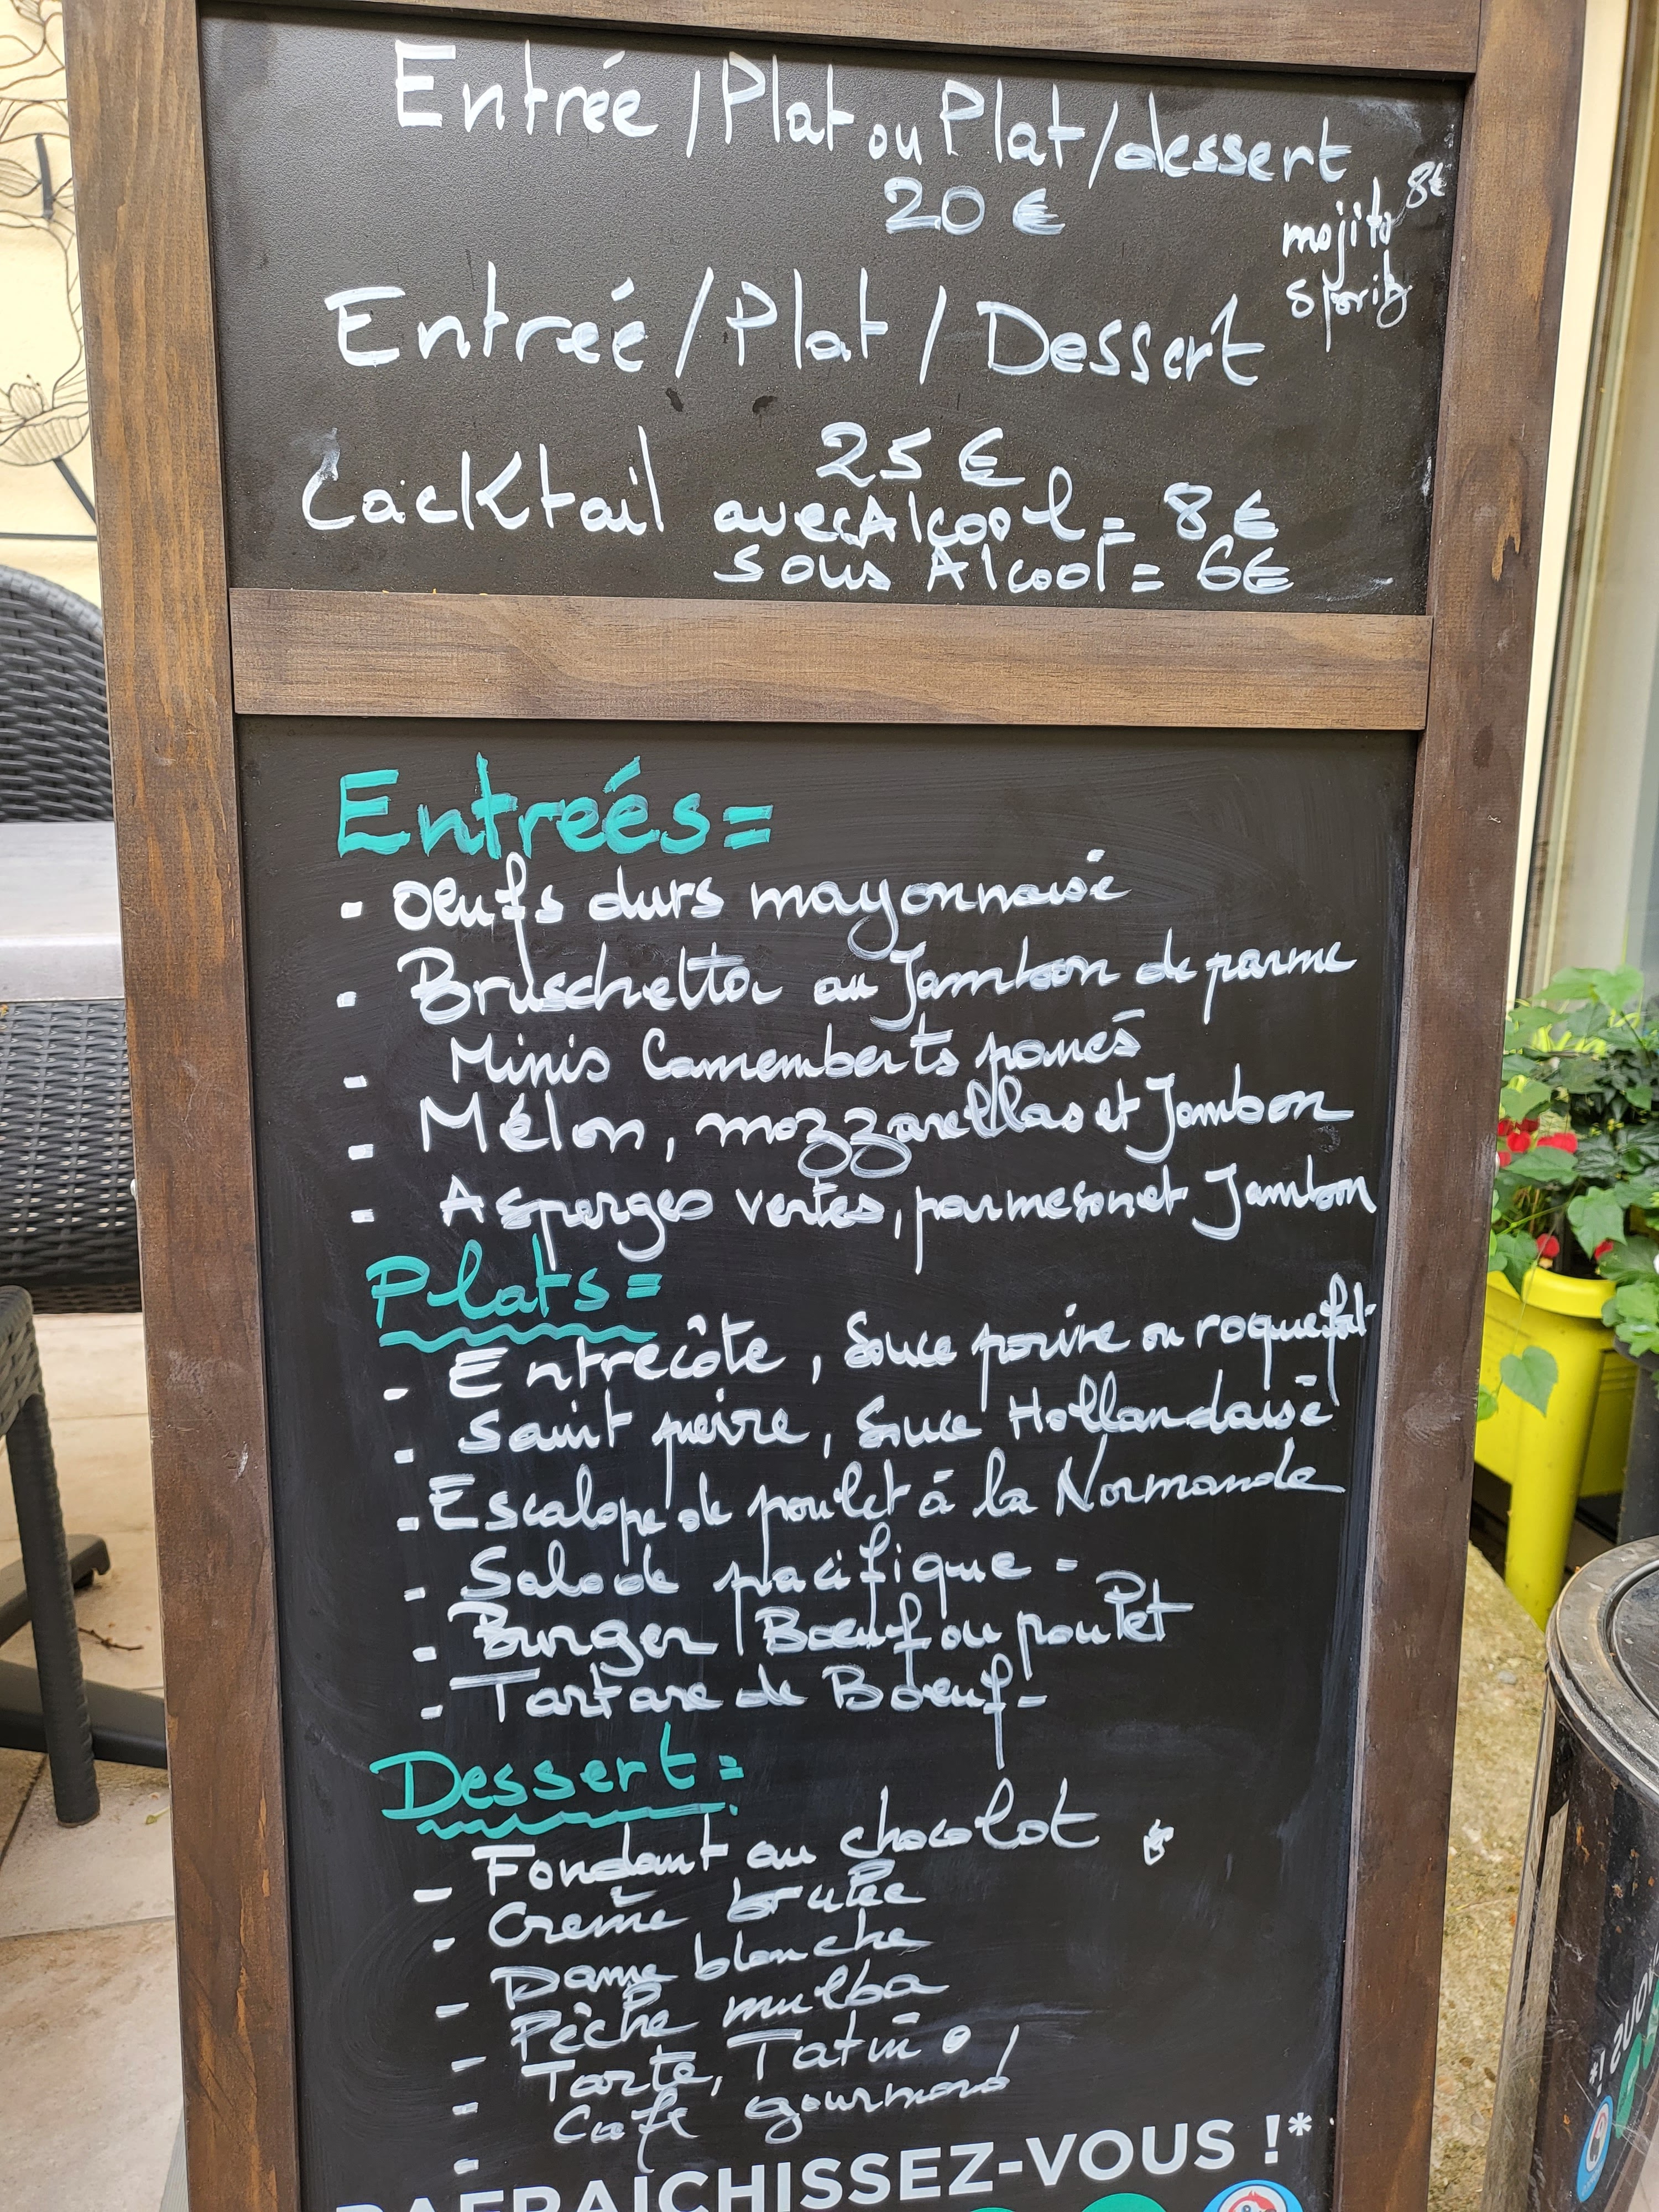 Entrée / Plat ou Plat / dessert
20 €
mojito 8€
spritz
Entreé / Plat / Dessert
25 €
Cacktail avec Alcool = 8€
sous Alcool = 6€
Entreés =
- Oeufs durs mayonnaise
- Bruschetta au Jambon de parme
- Minis Camemberts panés
- Mélon, mozzarellas et Jambon
- Asperges vertes, parmesan et Jambon
Plats =
- Entrecôte, Sauce poivre ou roquefort
- Saint peirre, Sauce Hollandaise
- Escalope de poulet à la Normande
- Salade pacifique -
- Burger / Boeuf ou poulet
- Tartare de Boeuf -
Dessert =
- Fondant au chocolat
- Crème brulée
- Dame blanche
- Pèche mulba
- Tarte, Tatin
- Café gourmand
RAFRAICHISSEZ-VOUS !*